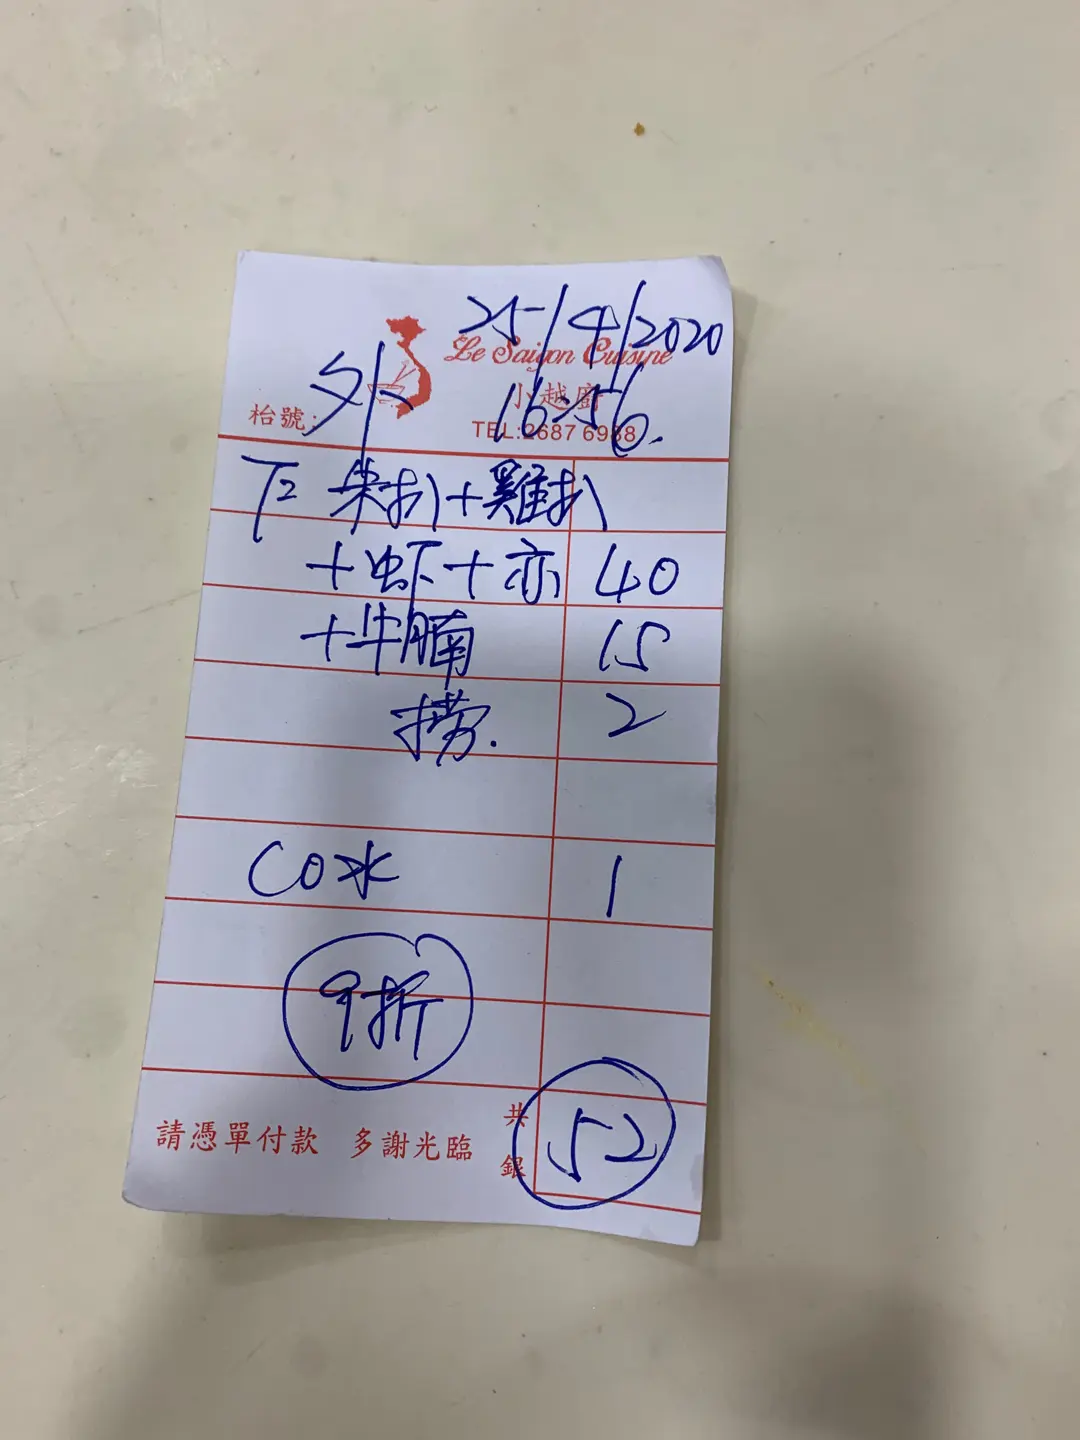 25/4/2020
Le Saigon Cuisine
小越廚
16:56.
枱號: 外
TEL:2687 6938
下2 朱扒+雞扒
+虾+亦 40
+牛腩 15
捞. 2
CO水 1
9折
共銀 52
請憑單付款 多謝光臨